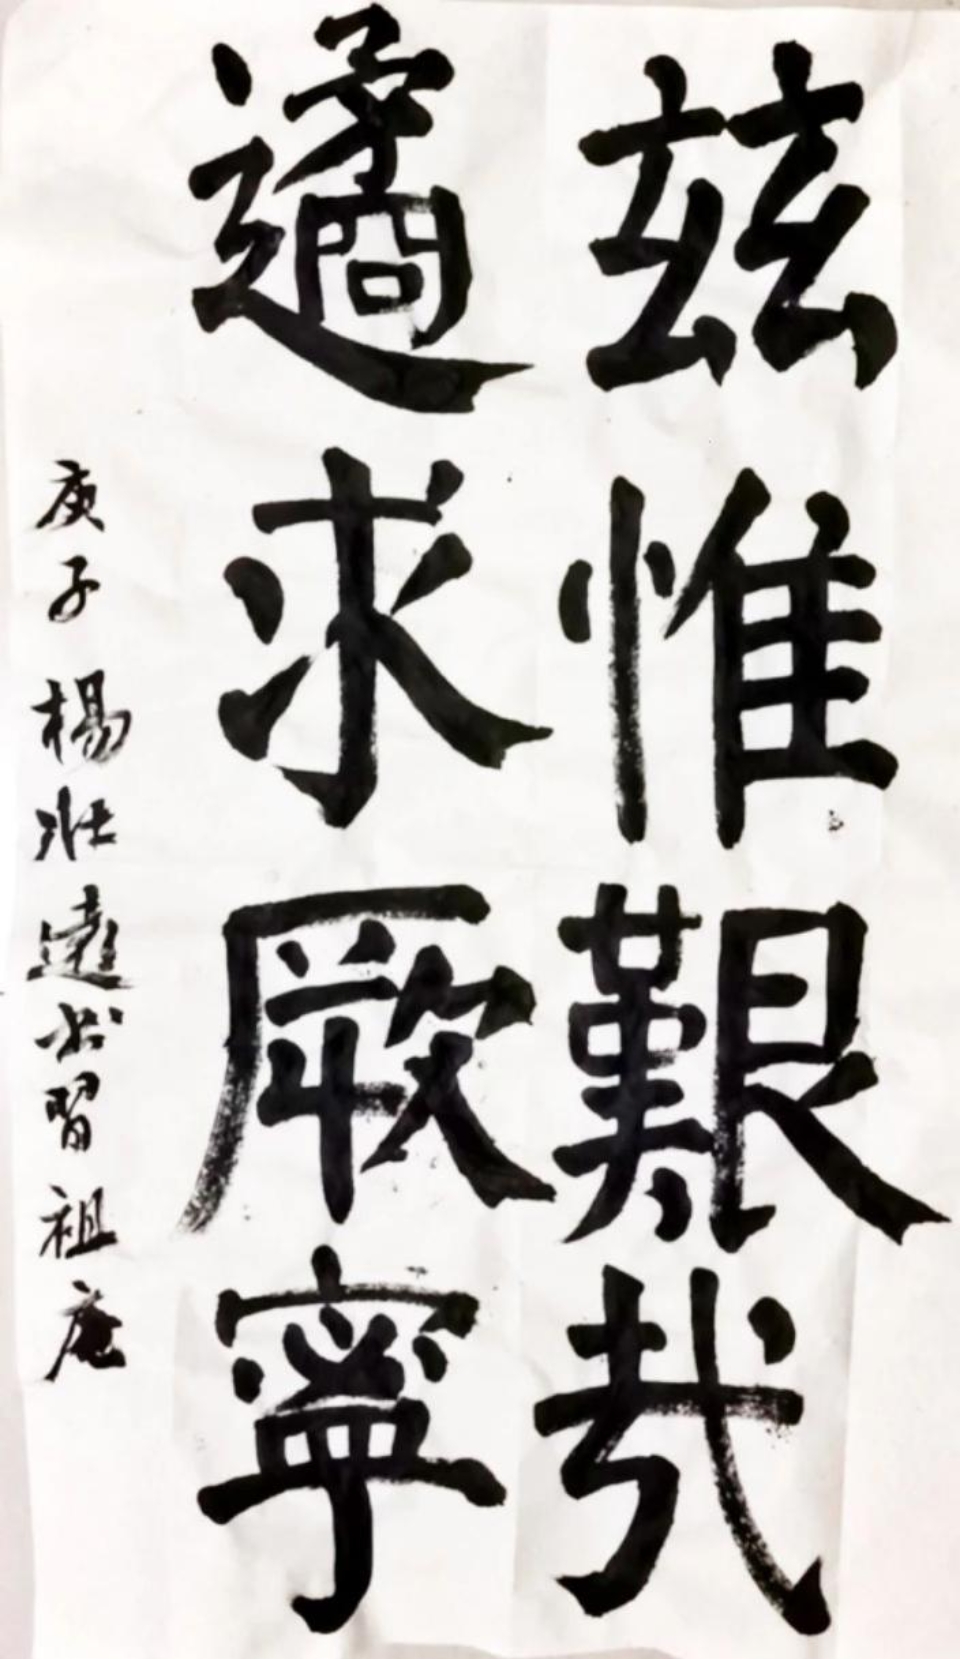 兹惟艱哉
遹求厥寧
庚子楊壯遠書習祖庵